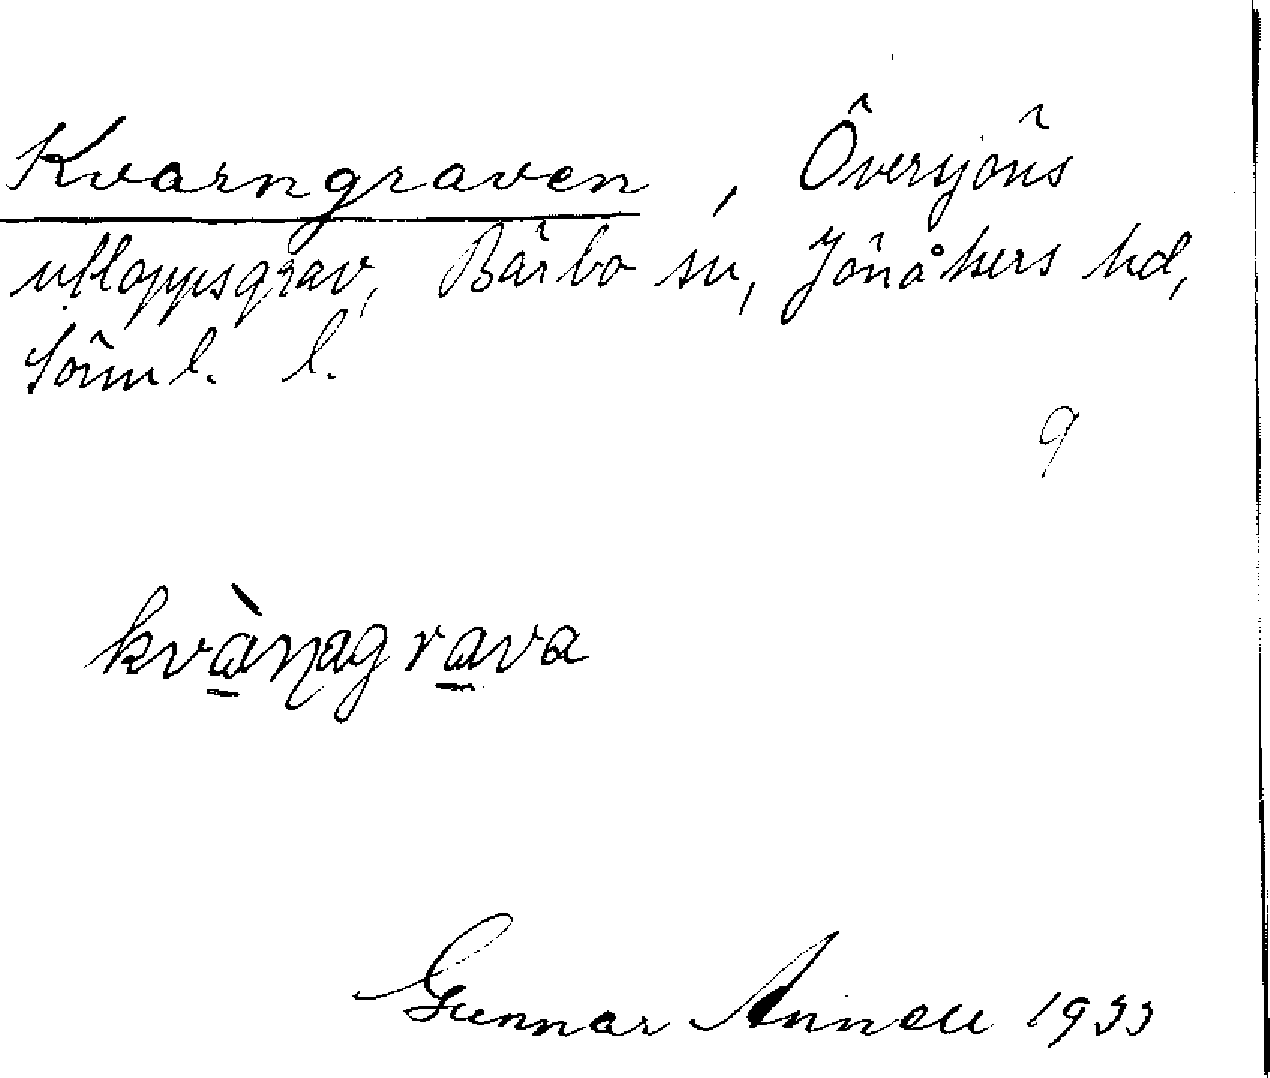 Kvarngraven, Översjöns
utloppsgrav, Bärbo sn, Jönåkers hd,
Sörml. l.
9
kvànagrava
Gunnar Annell 1933